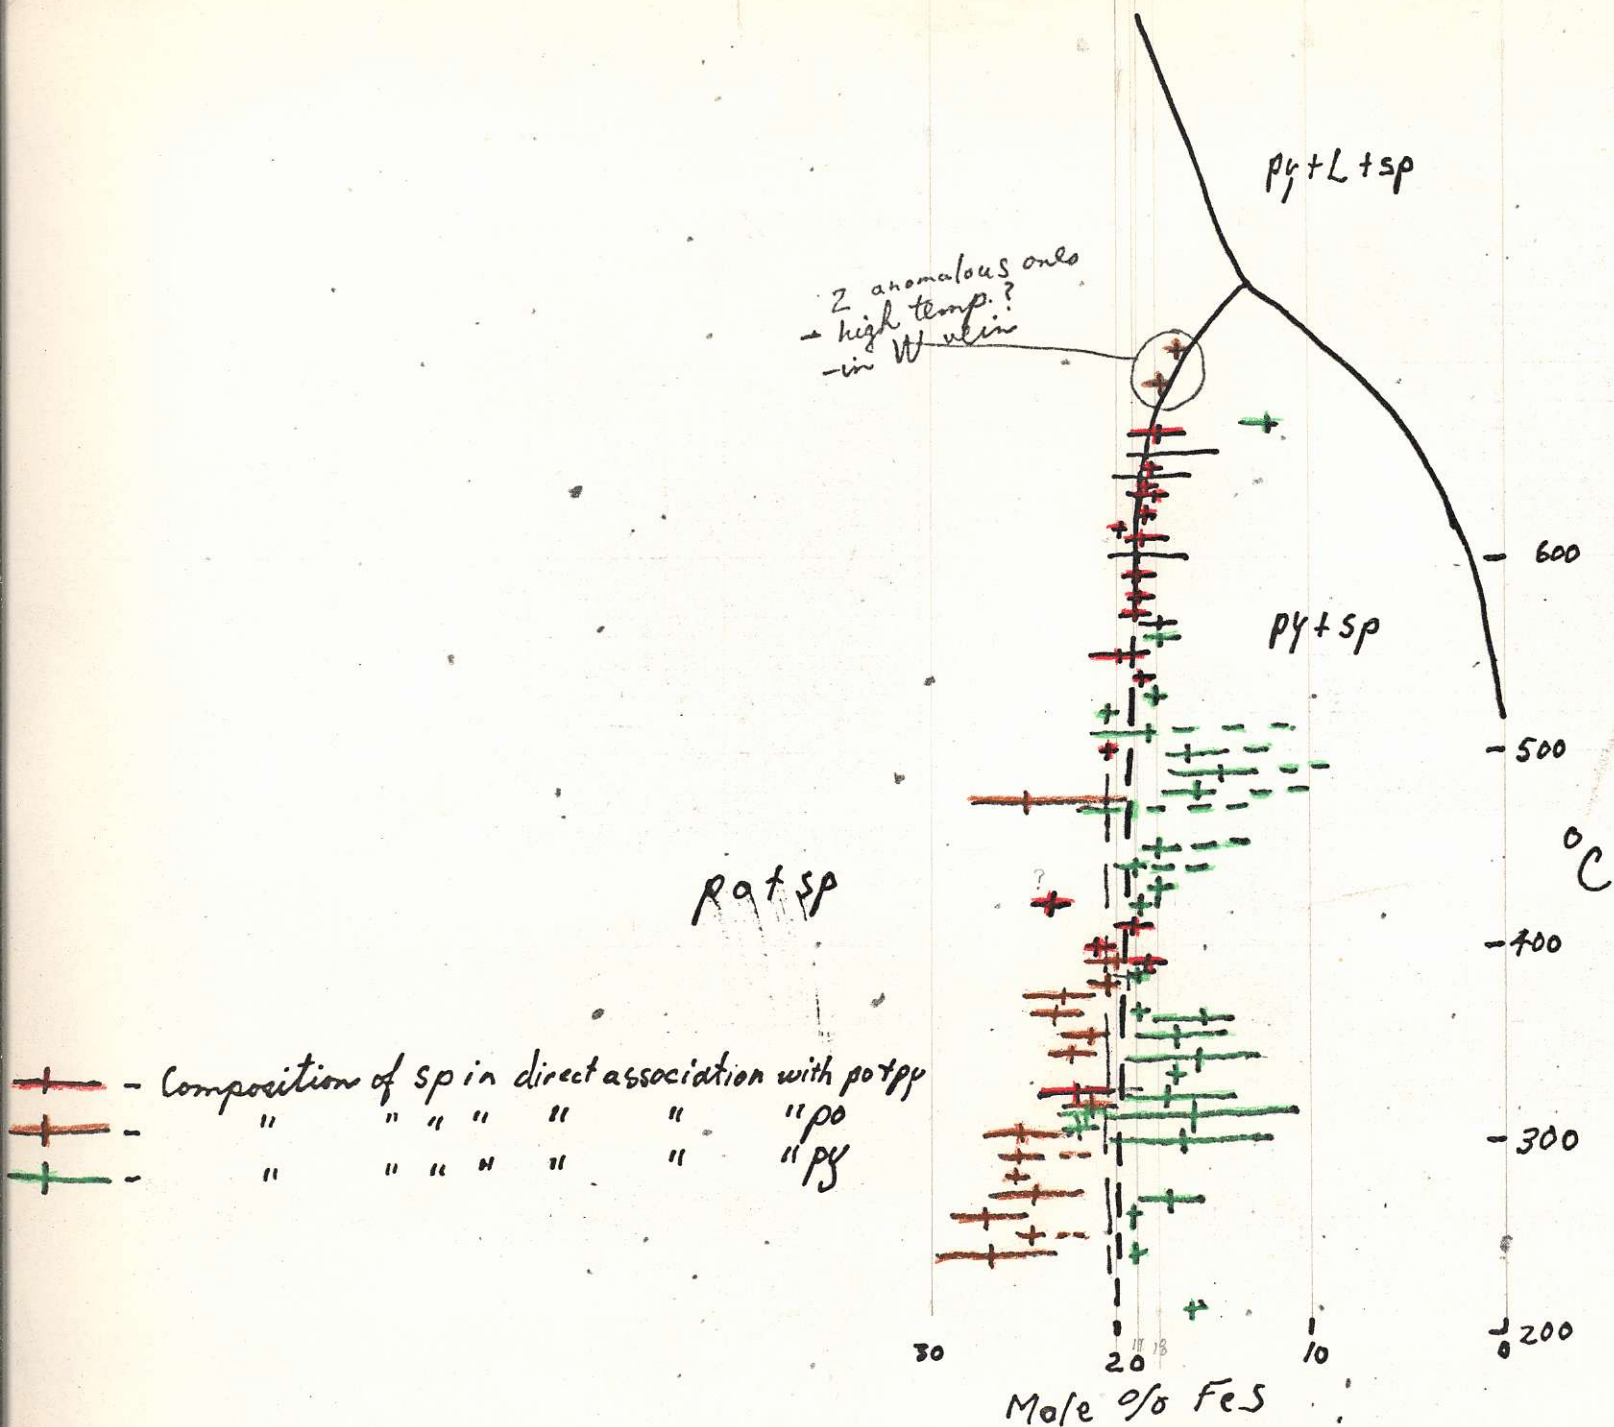 py+L+sp
2 anomalous ones
- high temp.?
- in W vein
600
py+sp
500
°C
?
po+sp
400
- Composition of sp in direct association with po+py
- " " " " " " " po
- " " " " " " " py
300
200
30 20 19 18 10 0
Mole % FeS